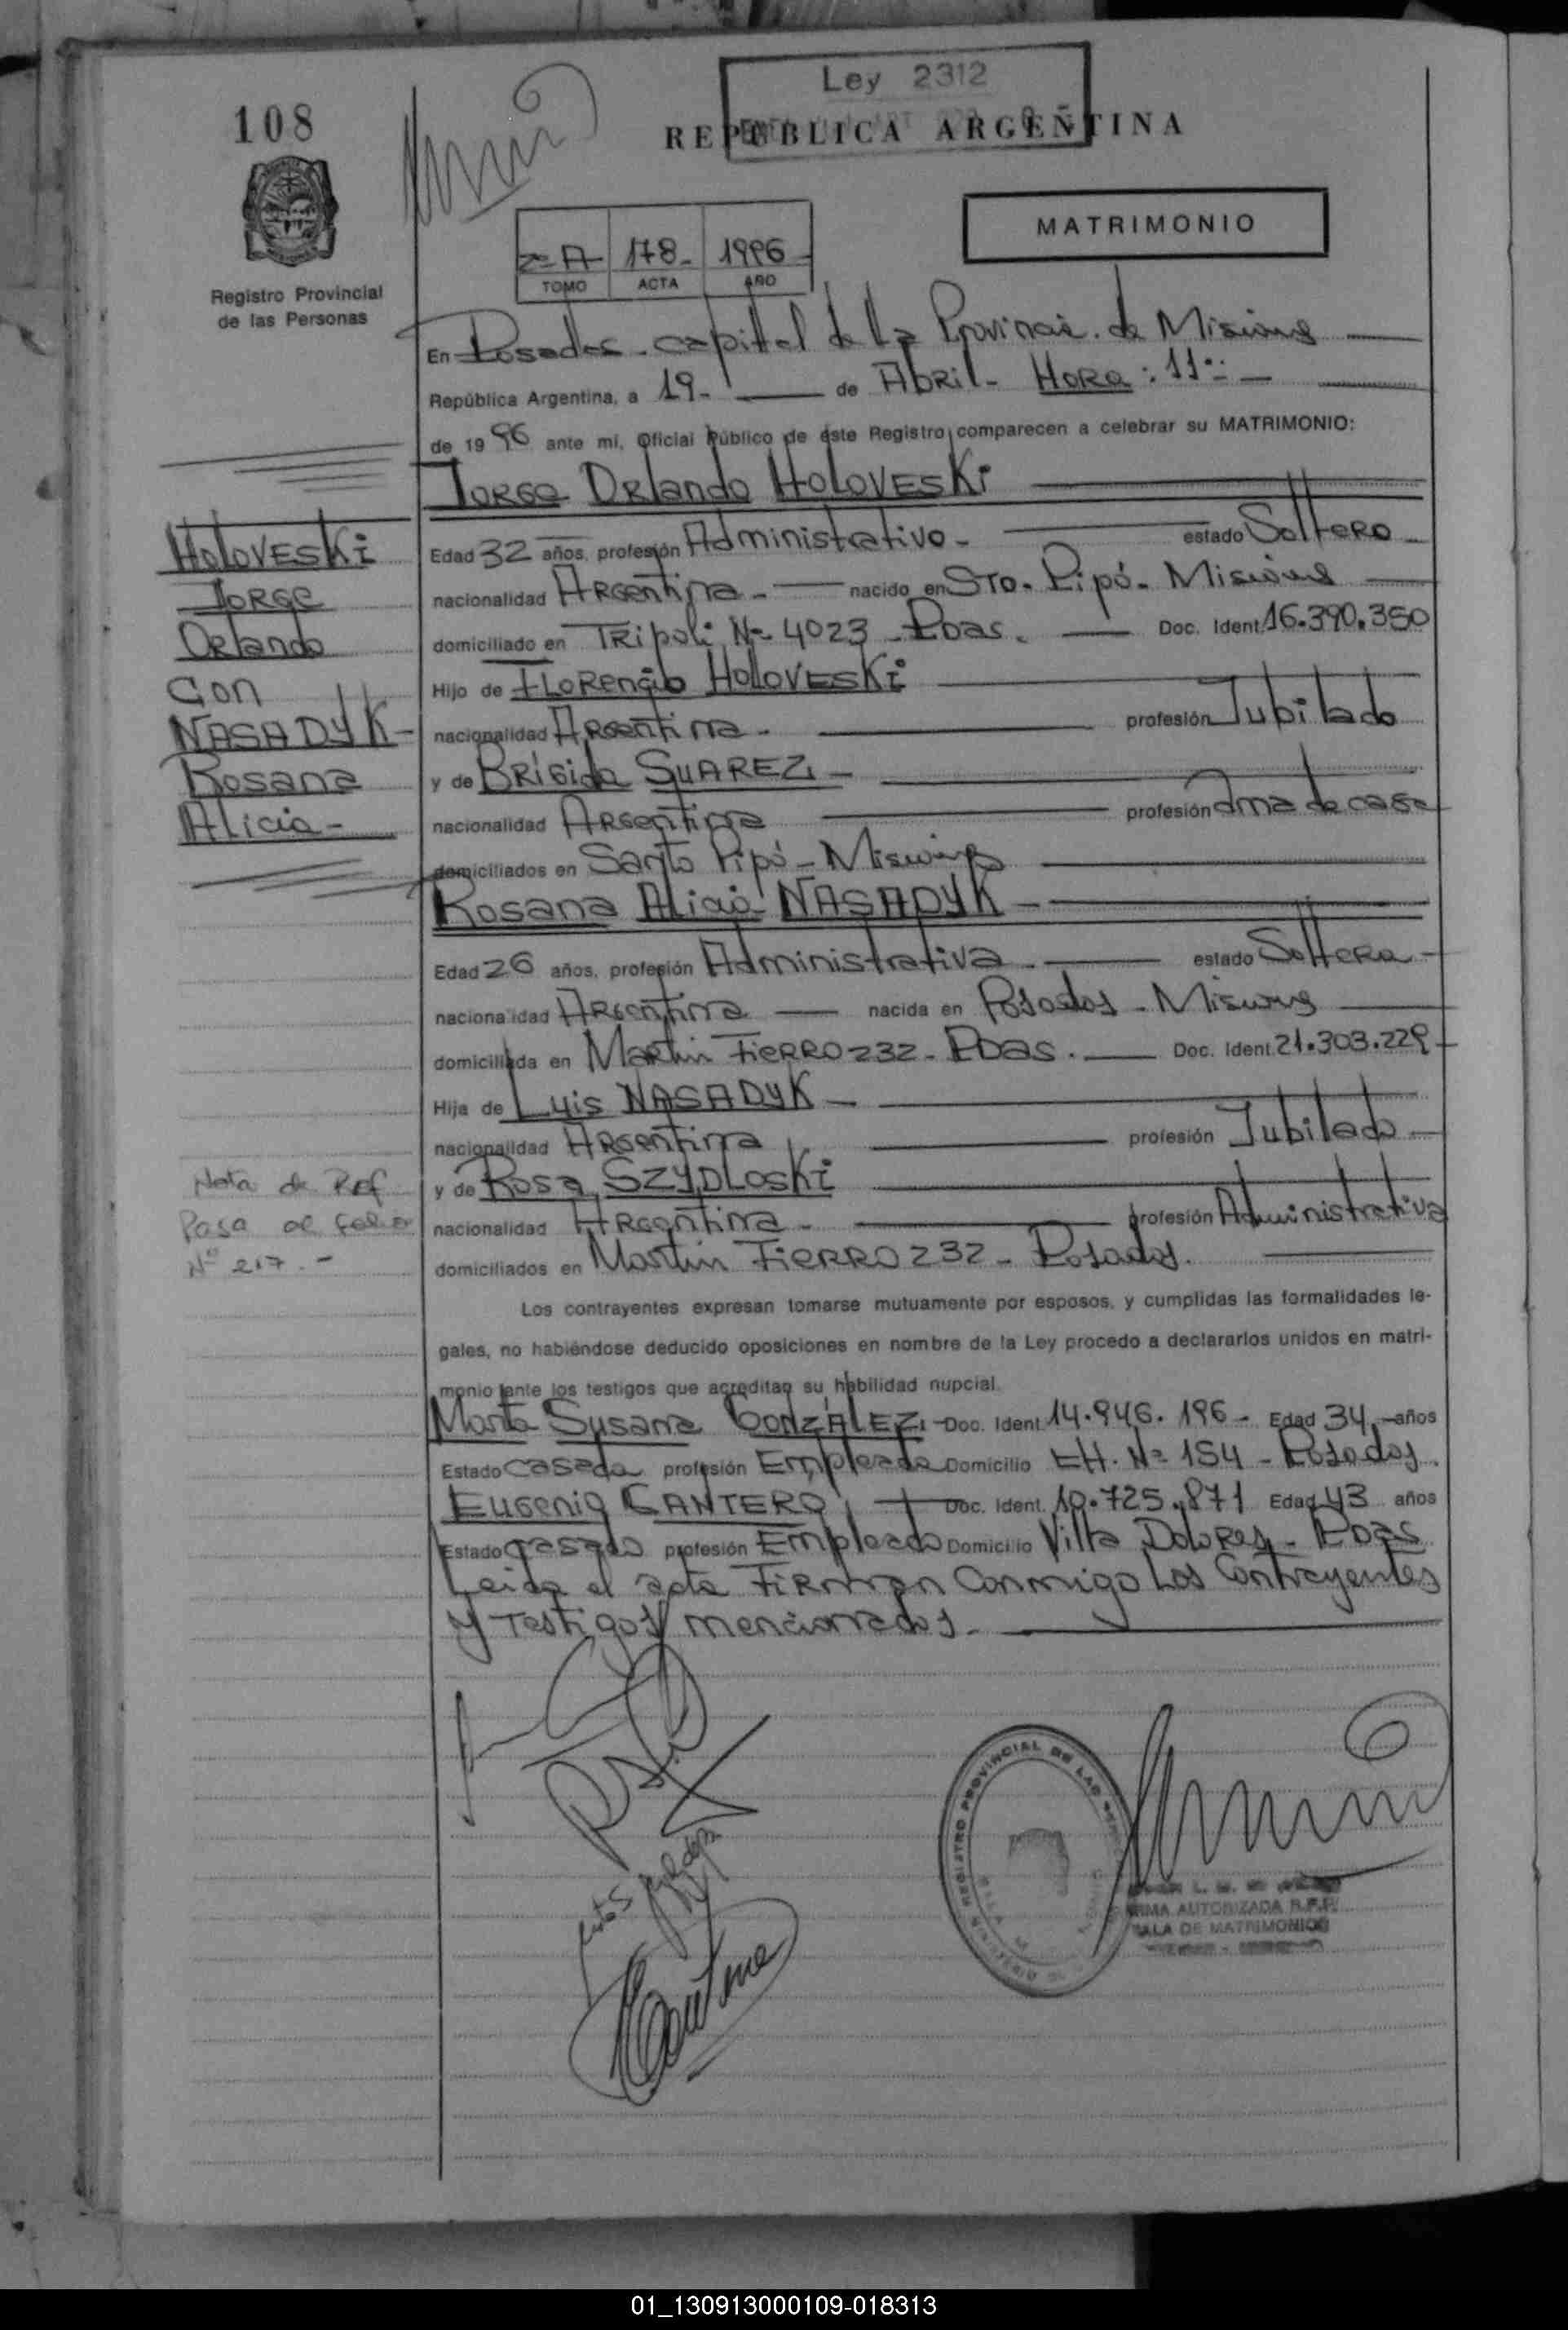 Ley 2312
108
REPUBLICA ARGENTINA
MATRIMONIO
2º A 178- 1996
TOMO ACTA AÑO
Registro Provincial
de las Personas
En Posadas - capital de la Provincia de Misiones
República Argentina, a 19- de Abril - HORA: 11:-
de 1996 ante mi, Oficial Público de éste Registro, comparecen a celebrar su MATRIMONIO:
JORGE ORLANDO HOLOVESKI
HOLOVESKI
JORGE
Orlando
CON
NASADYK-
Rosana
Alicia-
Edad 32 años, profesión Administrativo- estado Soltero-
nacionalidad Argentina- nacido en Sto. Pipó- Misiones
domiciliado en Tripoli Nº 4023 - Pdas. Doc. Ident. 16.390.350
Hijo de Florencio HOLOVESKI
nacionalidad Argentina- profesión Jubilado
y de Brígida SUAREZ-
nacionalidad Argentina profesión ama de casa
domiciliados en Santo Pipó- Misiones
Rosana Alicia NASADYK-
Edad 26 años, profesión Administrativa- estado Soltera-
nacionalidad Argentina nacida en Posadas - Misiones
domiciliada en Martin Fierro 232- Pdas. Doc. Ident. 21.303.229-
Hija de Luis NASADYK-
nacionalidad Argentina profesión Jubilado-
y de Rosa SZYDLOSKI
nacionalidad Argentina- profesión Administrativa
domiciliados en Martin Fierro 232- Posadas.
Nota de Ref
Pasa al folio
Nº 217.-
Los contrayentes expresan tomarse mutuamente por esposos, y cumplidas las formalidades le-
gales, no habiéndose deducido oposiciones en nombre de la Ley procedo a declararlos unidos en matri-
monio ante los testigos que acreditan su habilidad nupcial.
Marta Susana GONZÁLEZ- Doc. Ident. 14.946.196- Edad 34.- años
Estado casada profesión Empleada Domicilio CH. Nº 154 - Posadas.
Eugenio CANTERO, Doc. Ident. 10.725.871 Edad 43 años
Estado casado profesión Empleado Domicilio Villa Dolores- Pdas
Leida el acta Firman conmigo los contrayentes
y Testigos mencionados-
REGISTRO PROVINCIAL DE LAS
FIRMA AUTORIZADA R.P.P.
SALA DE MATRIMONIOS
01_130913000109-018313